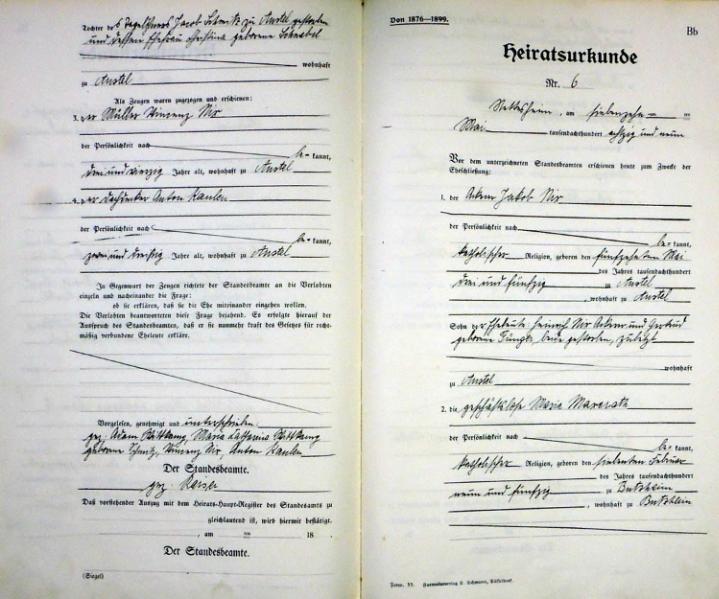 Tochter des Tagelöhners Jacob Schmitz zu Anstel gestorben
und dessen Ehefrau Christina geborene Schnabel
wohnhaft
zu Anstel
Als Zeugen waren zugezogen und erschienen:
3. der Müller Vincenz Nix
der Persönlichkeit nach
be- kannt,
drei und vierzig Jahre alt, wohnhaft zu Anstel
4. der Dachdecker Anton Kaulen
der Persönlichkeit nach
be- kannt,
zwei und dreißig Jahre alt, wohnhaft zu Anstel
In Gegenwart der Zeugen richtete der Standesbeamte an die Verlobten
einzeln und nacheinander die Frage:
ob sie erklären, daß sie die Ehe miteinander eingehen wollen.
Die Verlobten beantworteten diese Frage bejahend. Es erfolgte hierauf der
Ausspruch des Standesbeamten, daß er sie nunmehr kraft des Gesetzes für recht-
mäßig verbundene Eheleute erkläre.
Vorgelesen, genehmigt und unterschrieben
gez. Adam Maria Catharina
geborene Schmitz, Vincenz Nix, Anton Kaulen
Der Standesbeamte.
gez. Kaiser
Daß vorstehender Auszug mit dem Heirats-Haupt-Register des Standesamts zu
gleichlautend ist, wird hiermit bestätigt.
, am 18
Der Standesbeamte.
(Siegel)
Von 1876—1899.
Bb
Heiratsurkunde
Nr. 6
Nettesheim, am siebenzehn ten
Mai tausendachthundert achtzig und neun
Vor dem unterzeichneten Standesbeamten erschienen heute zum Zwecke der
Eheschließung:
1. der Ackerer Jakob Nix
der Persönlichkeit nach
be- kannt,
katholischer Religion, geboren den fünfzehnten Mai
des Jahres tausendachthundert
drei und fünfzig zu Anstel
, wohnhaft zu Anstel
Sohn der Eheleute Heinrich Nix Ackerer und Gertrud
geborene beide gestorben, zuletzt
wohnhaft
zu Anstel
2. die geschäftslose Maria
der Persönlichkeit nach
be- kannt,
katholischer Religion, geboren den siebenten Februar
des Jahres tausendachthundert
neun und fünfzig zu Butzheim
, wohnhaft zu Butzheim